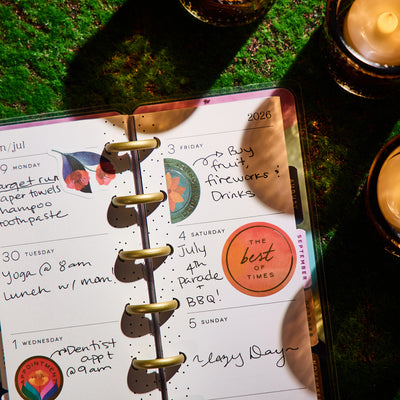 n/jul
2026
9 MONDAY
target run
paper towels
shampoo
toothpaste
30 TUESDAY
Yoga @ 8am
Lunch w/ mom
1 WEDNESDAY
Dentist
appt
@ 9am
APPOINTMENT
3 FRIDAY
Buy
fruit,
fireworks &
Drinks
4 SATURDAY
July
4th
Parade
+
BBQ!
THE
best
OF
TIMES
5 SUNDAY
~Lazy Day~
SEPTEMBER